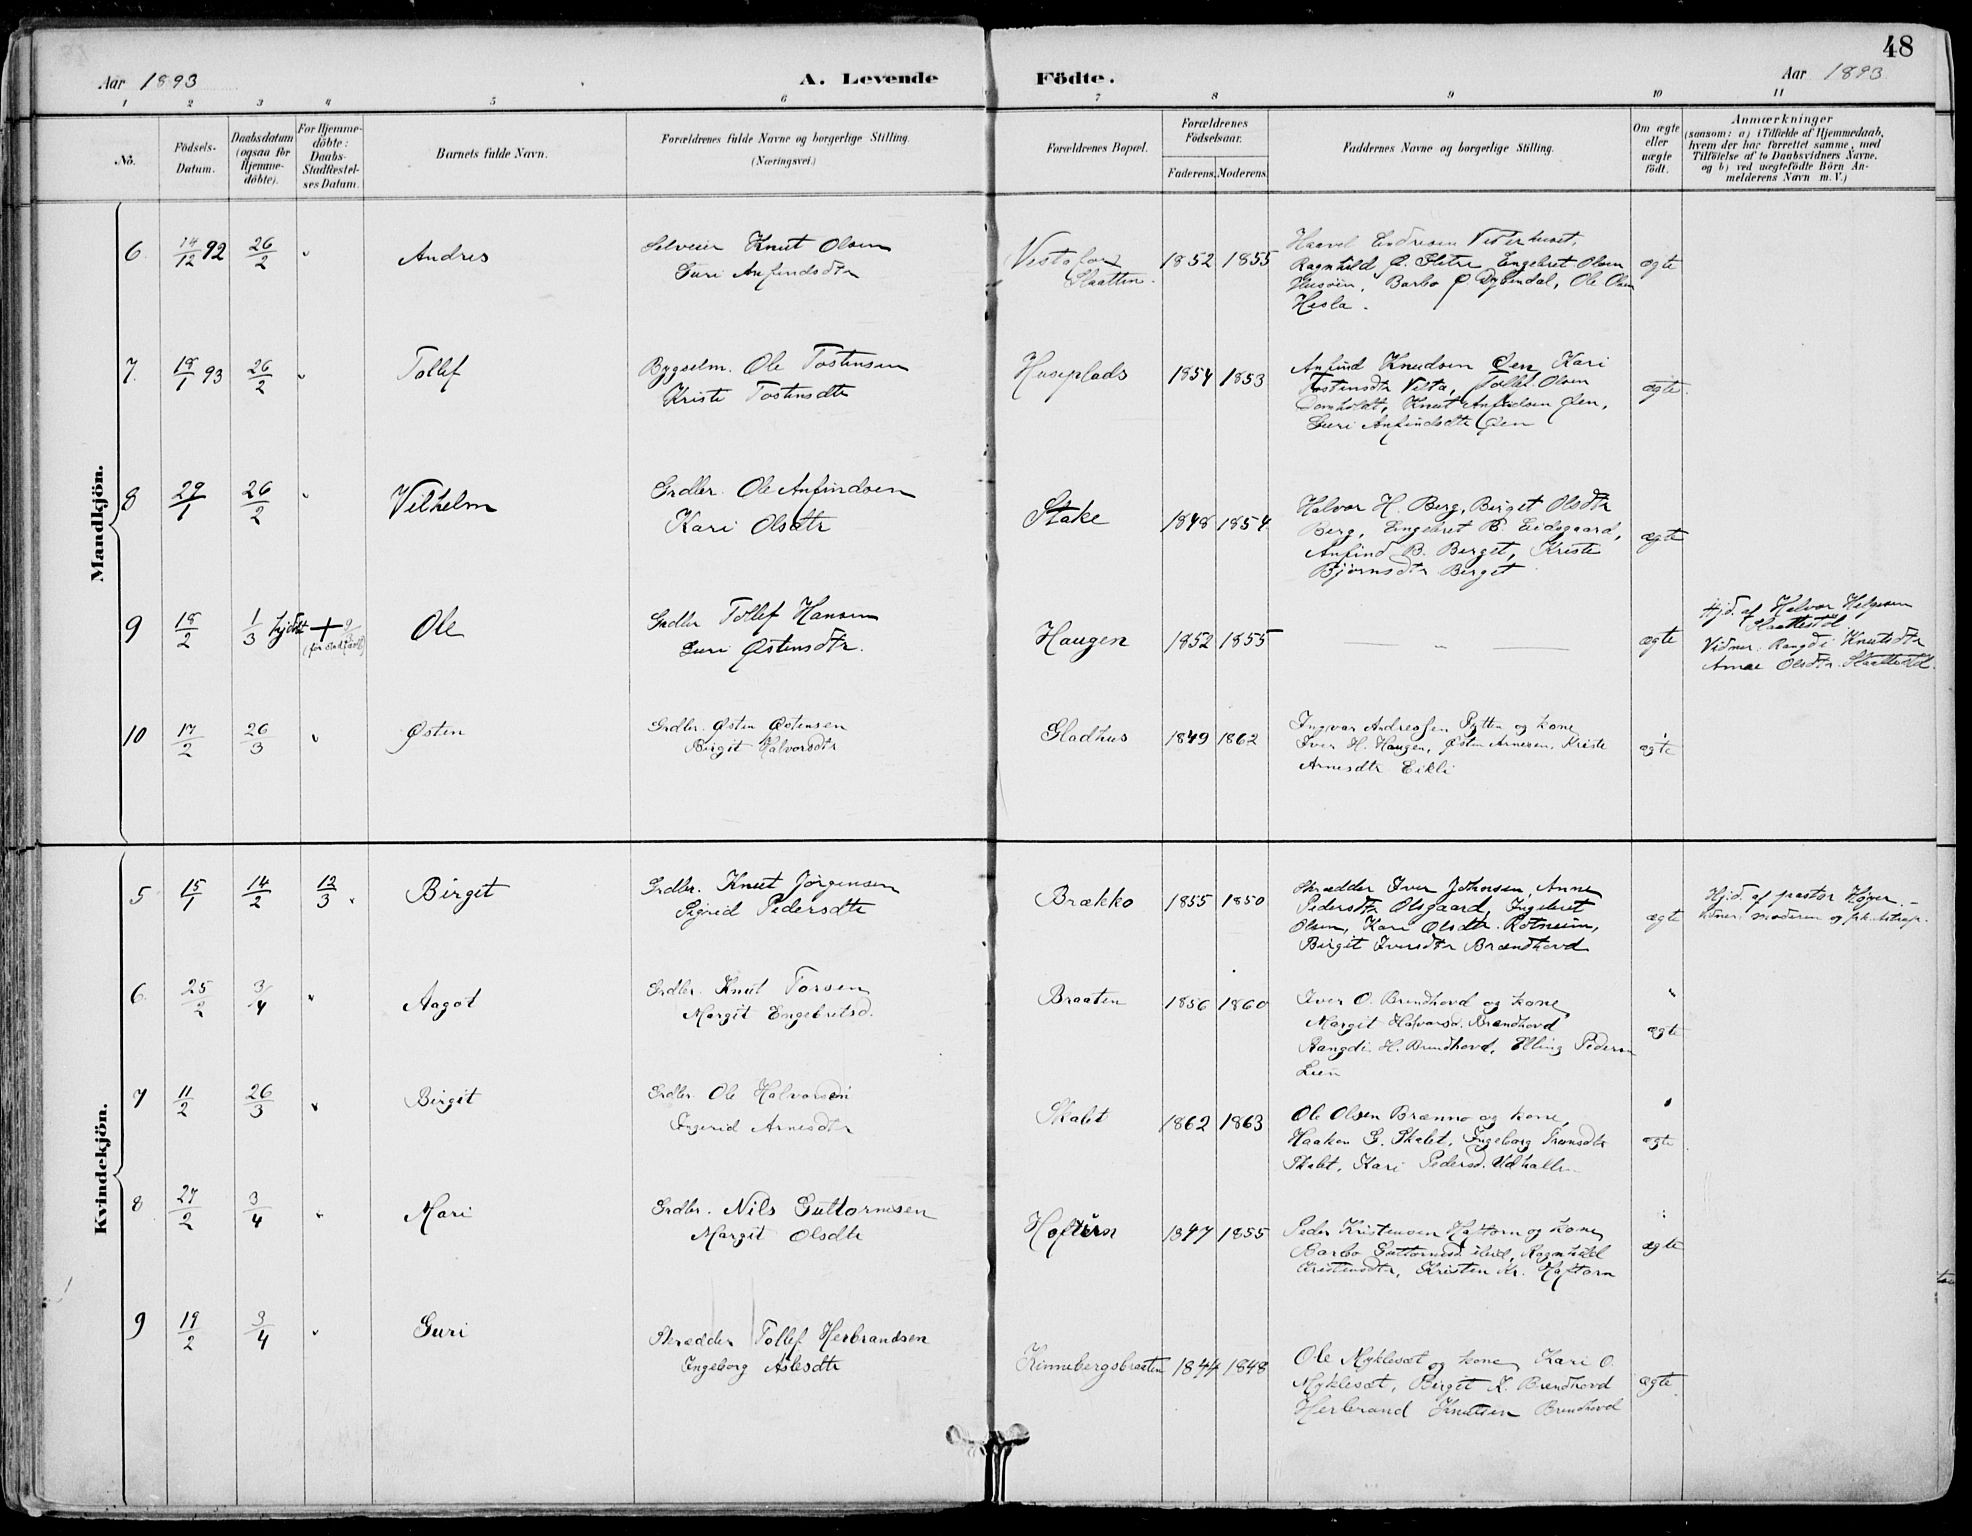 48
Aar 1893
A. Levende Födte.
Aar 1893
1 2 3 4 5 6 7 8 9 10 11
No.
Födsels-Datum.
Daabsdatum (ogsaa for Hjemme-döbte).
For Hjemme-döbte: Daabs-Stadfæstel-ses Datum.
Barnets fulde Navn.
Forældrenes fulde Navne og borgerlige Stilling.
(Næringsvei.)
Forældrenes Bopæl.
Forældrenes Födselsaar.
Faderens. Moderens.
Faddernes Navne og borgerlige Stilling.
Om ægte eller uægte födt.
Anmærkninger
(saasom: a) i Tilfælde af Hjemmedaab,
hvem der har forrettet samme, med
Tilföielse af to Daabsvidners Navne,
og b) ved uægtefödte Börn An-
melderens Navn m. V.)
Mandkjön.
6 14/12 92 26/2 " Andres
Selveier Knut Olsen
Guri Anfindsdtr
Slaatten.
1852 1855
Ragnhild O. Engebret Olsen
Barbo O. Ole Olsen
Hesla.
ægte
7. 18/1 93 26/2 " Tollef
Bygselm. Ole Tostensen
Kristi Tostensdtr
Huseplads 1854 1853
Anfind Knudsen Øen Kari
Tostensdtr Tollef Olsen
Knut Anfindsen Øen,
Guri Anfindsdtr Øen
ægte
8 29/1 26/2 " Vilhelm
Grdbr. Ole Anfindsen
Kari Olsdtr
Stake 1848 1854
Halvor H. Berg, Birget Olsdtr
Berg, Engebret B. Eidsgaard,
Anfind B. Berget, Kristi
Bjørnsdtr Berget
ægte
9 18/2 1/3 hjdbt + Ole
Grdbr Tollef Hansen
Guri Østensdtr.
Haugen 1852 1855 — " — ægte
Hjd. af Halvor Helgesen
Vidner. Rangdi Knutsdtr
Olsdtr.
10 17/2 26/3 " Østen
Grdbr. Østen Østensen
Birgit Halvorsdtr
Gladhus 1849 1862
Ingvar Andreassen og kone
Iver H. Haugen, Østen Arnesen, Kristi
Arnesdtr. Eikli
ægte
Kvindekjön.
5 15/1 14/2 12/3 Birget
Grdbr. Knut Jörgensen
Sigrid Pedersdtr
Brækko 1855 1850
Skrædder Iver Anne
Pedersdtr Olsgaard, Ingebret
Olsen, Kari Olsdtr. Rotneim,
Birgit Iversdtr Brændhovd
ægte
Hjd. af pastor Høyer. -
moderen og
6 25/2 3/4 " Aagot
Grdbr. Knut Torsen
Margit Engebretsd.
Braaten 1856 1860
Iver O. Brendhovd og kone
Margit Halvorsd. Brændhovd
Rangdi H. Brendhovd, Elling Pedersen
Lien
ægte
7 11/2 26/3 " Birgit
Grdbr Ole Halvorsen
Ingerid Arnesdtr
Skalet 1862 1863
Ole Olsen Brænno og kone,
Haaken G. Skalet, Ingeborg
Skalet, Kari Pedersd.
ægte
8 27/2 3/4 " Mari
Grdbr. Nils Guttormsen
Margit Olsdtr
1847 1855
Peder Kristensen Haftorn og kone
Barbo Guttormsd. ibid, Ragnhild
Kristensdtr, Kristen Kr. Haftorn
ægte
9 19/2 3/4 " Guri
Skrædder Tollef Herbrandsen
Ingeborg Aslesdtr
Kinnebergsbraaten 1844 1848
Ole Myklesæt og kone, Kari O.
Myklesæt, Birgit K. Brendhovd
Herbrand Knutsen Brendhovd
ægte